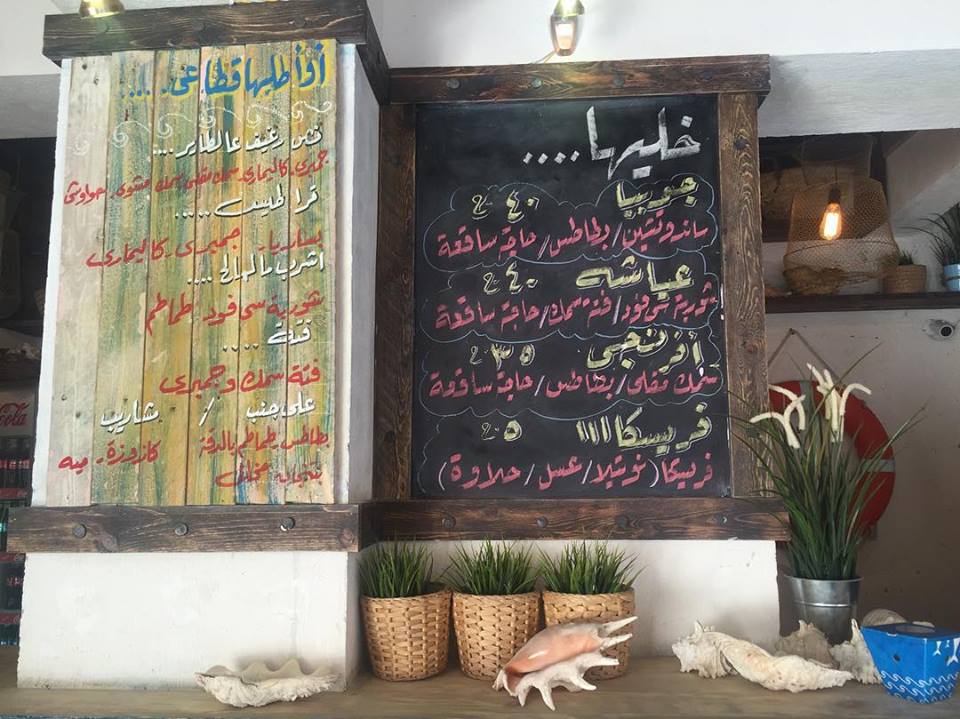 أو أطلبها قطاعى.....
نص رغيف عالطاير....
جمبرى. كاليمارى. سمك مقلى. سمك مشوى. حواوشى
قراطيس.....
بساريا. جمبرى. كاليمارى
اشرب يا مالح....
شوربة سى فود. طماطم
فتة....
فتة سمك وجمبرى
على جنب / مشاريب
بطاطس. طماطم بالدقة
كازوزة. ميه
بتنجان مخلل
خليها....
جوبيا ٤٠ ج
ساندوتشين/بطاطس/حاجة ساقعة
عياشه ٤٠ ج
شوربة سى فود/فتة سمك/حاجة ساقعة
أفرنجى ٣٥ ج
سمك مقلى/بطاطس/حاجة ساقعة
فريسكا!!!! ٥ ج
فريسكا (نوتيلا/عسل/حلاوة)
Coca-Cola